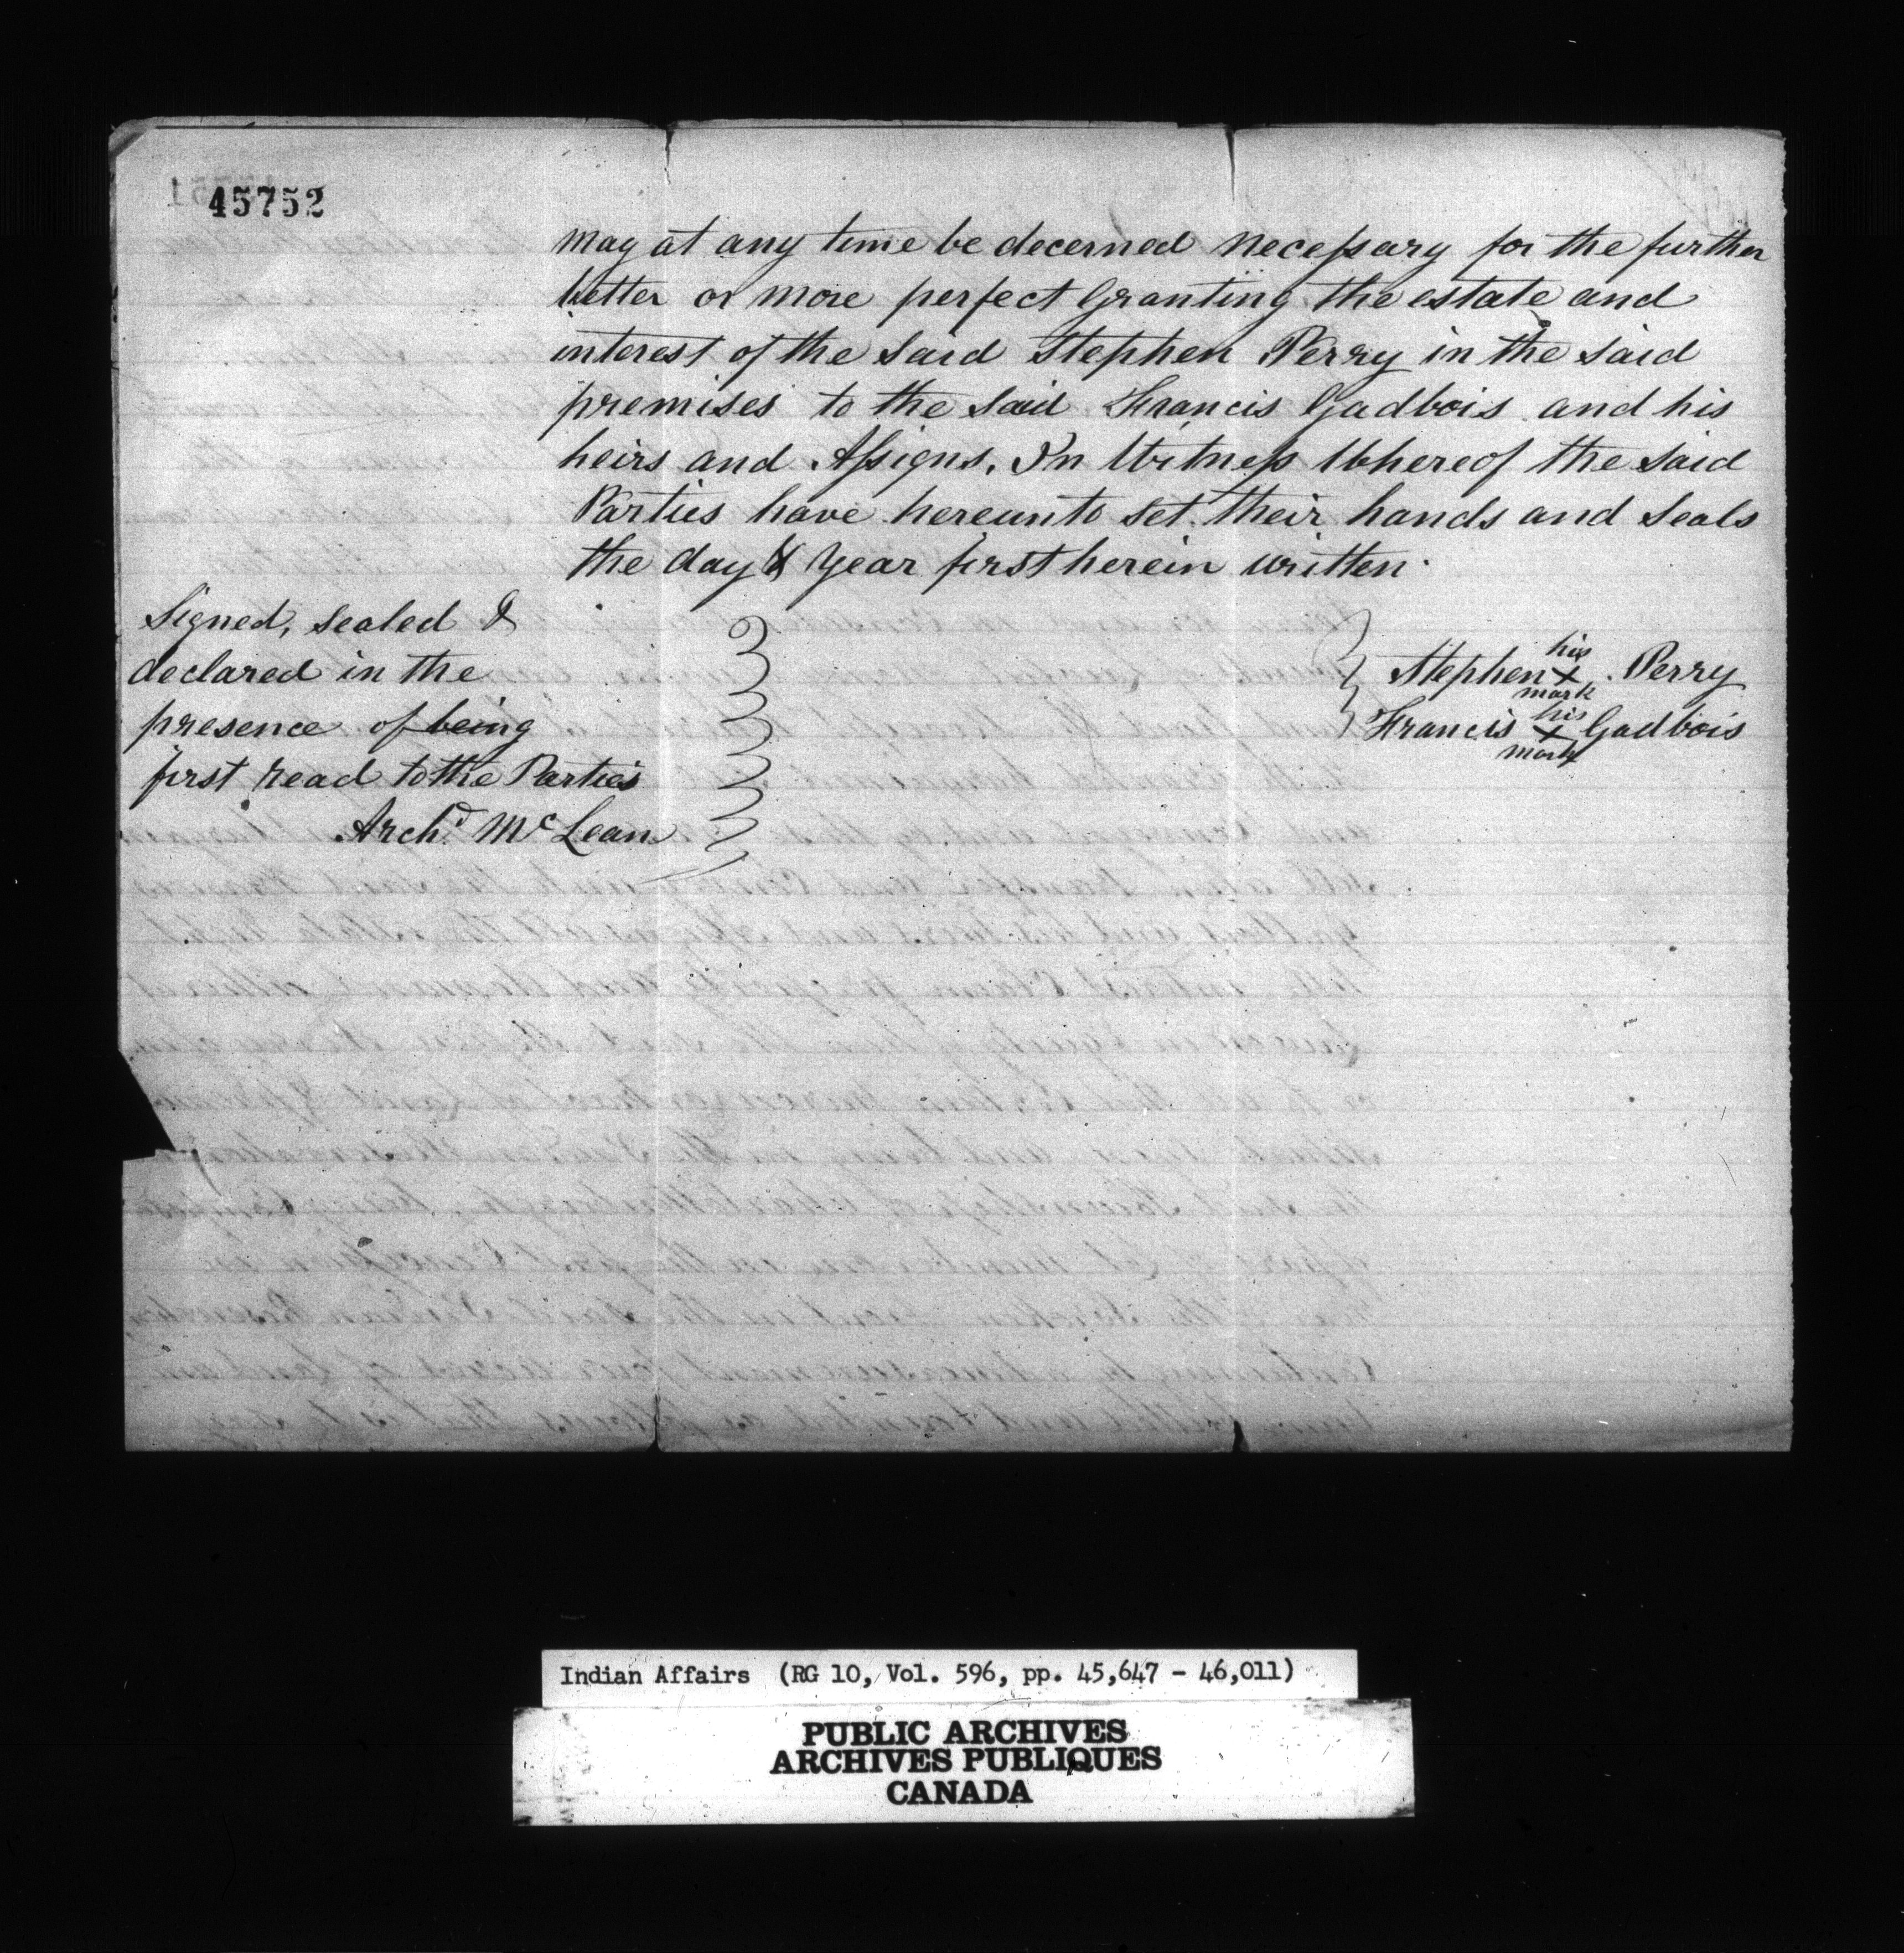 45752
may at any time be decerned necessary for the further
better or more perfect Granting the estate and
interest of the said Stephen Perry in the said
premises to the said Francis Gadbois and his
heirs and Assigns, In Witness Whereof the said
Parties have hereunto set their hands and seals
the day & year first herein written.
Signed, sealed &
declared in the
presence of being
first read to the Parties
Archd. McLean
his
Stephen X Perry
mark
his
Francis X Gadbois
mark
Indian Affairs (RG 10, Vol. 596, pp. 45,647 - 46,011)
PUBLIC ARCHIVES
ARCHIVES PUBLIQUES
CANADA